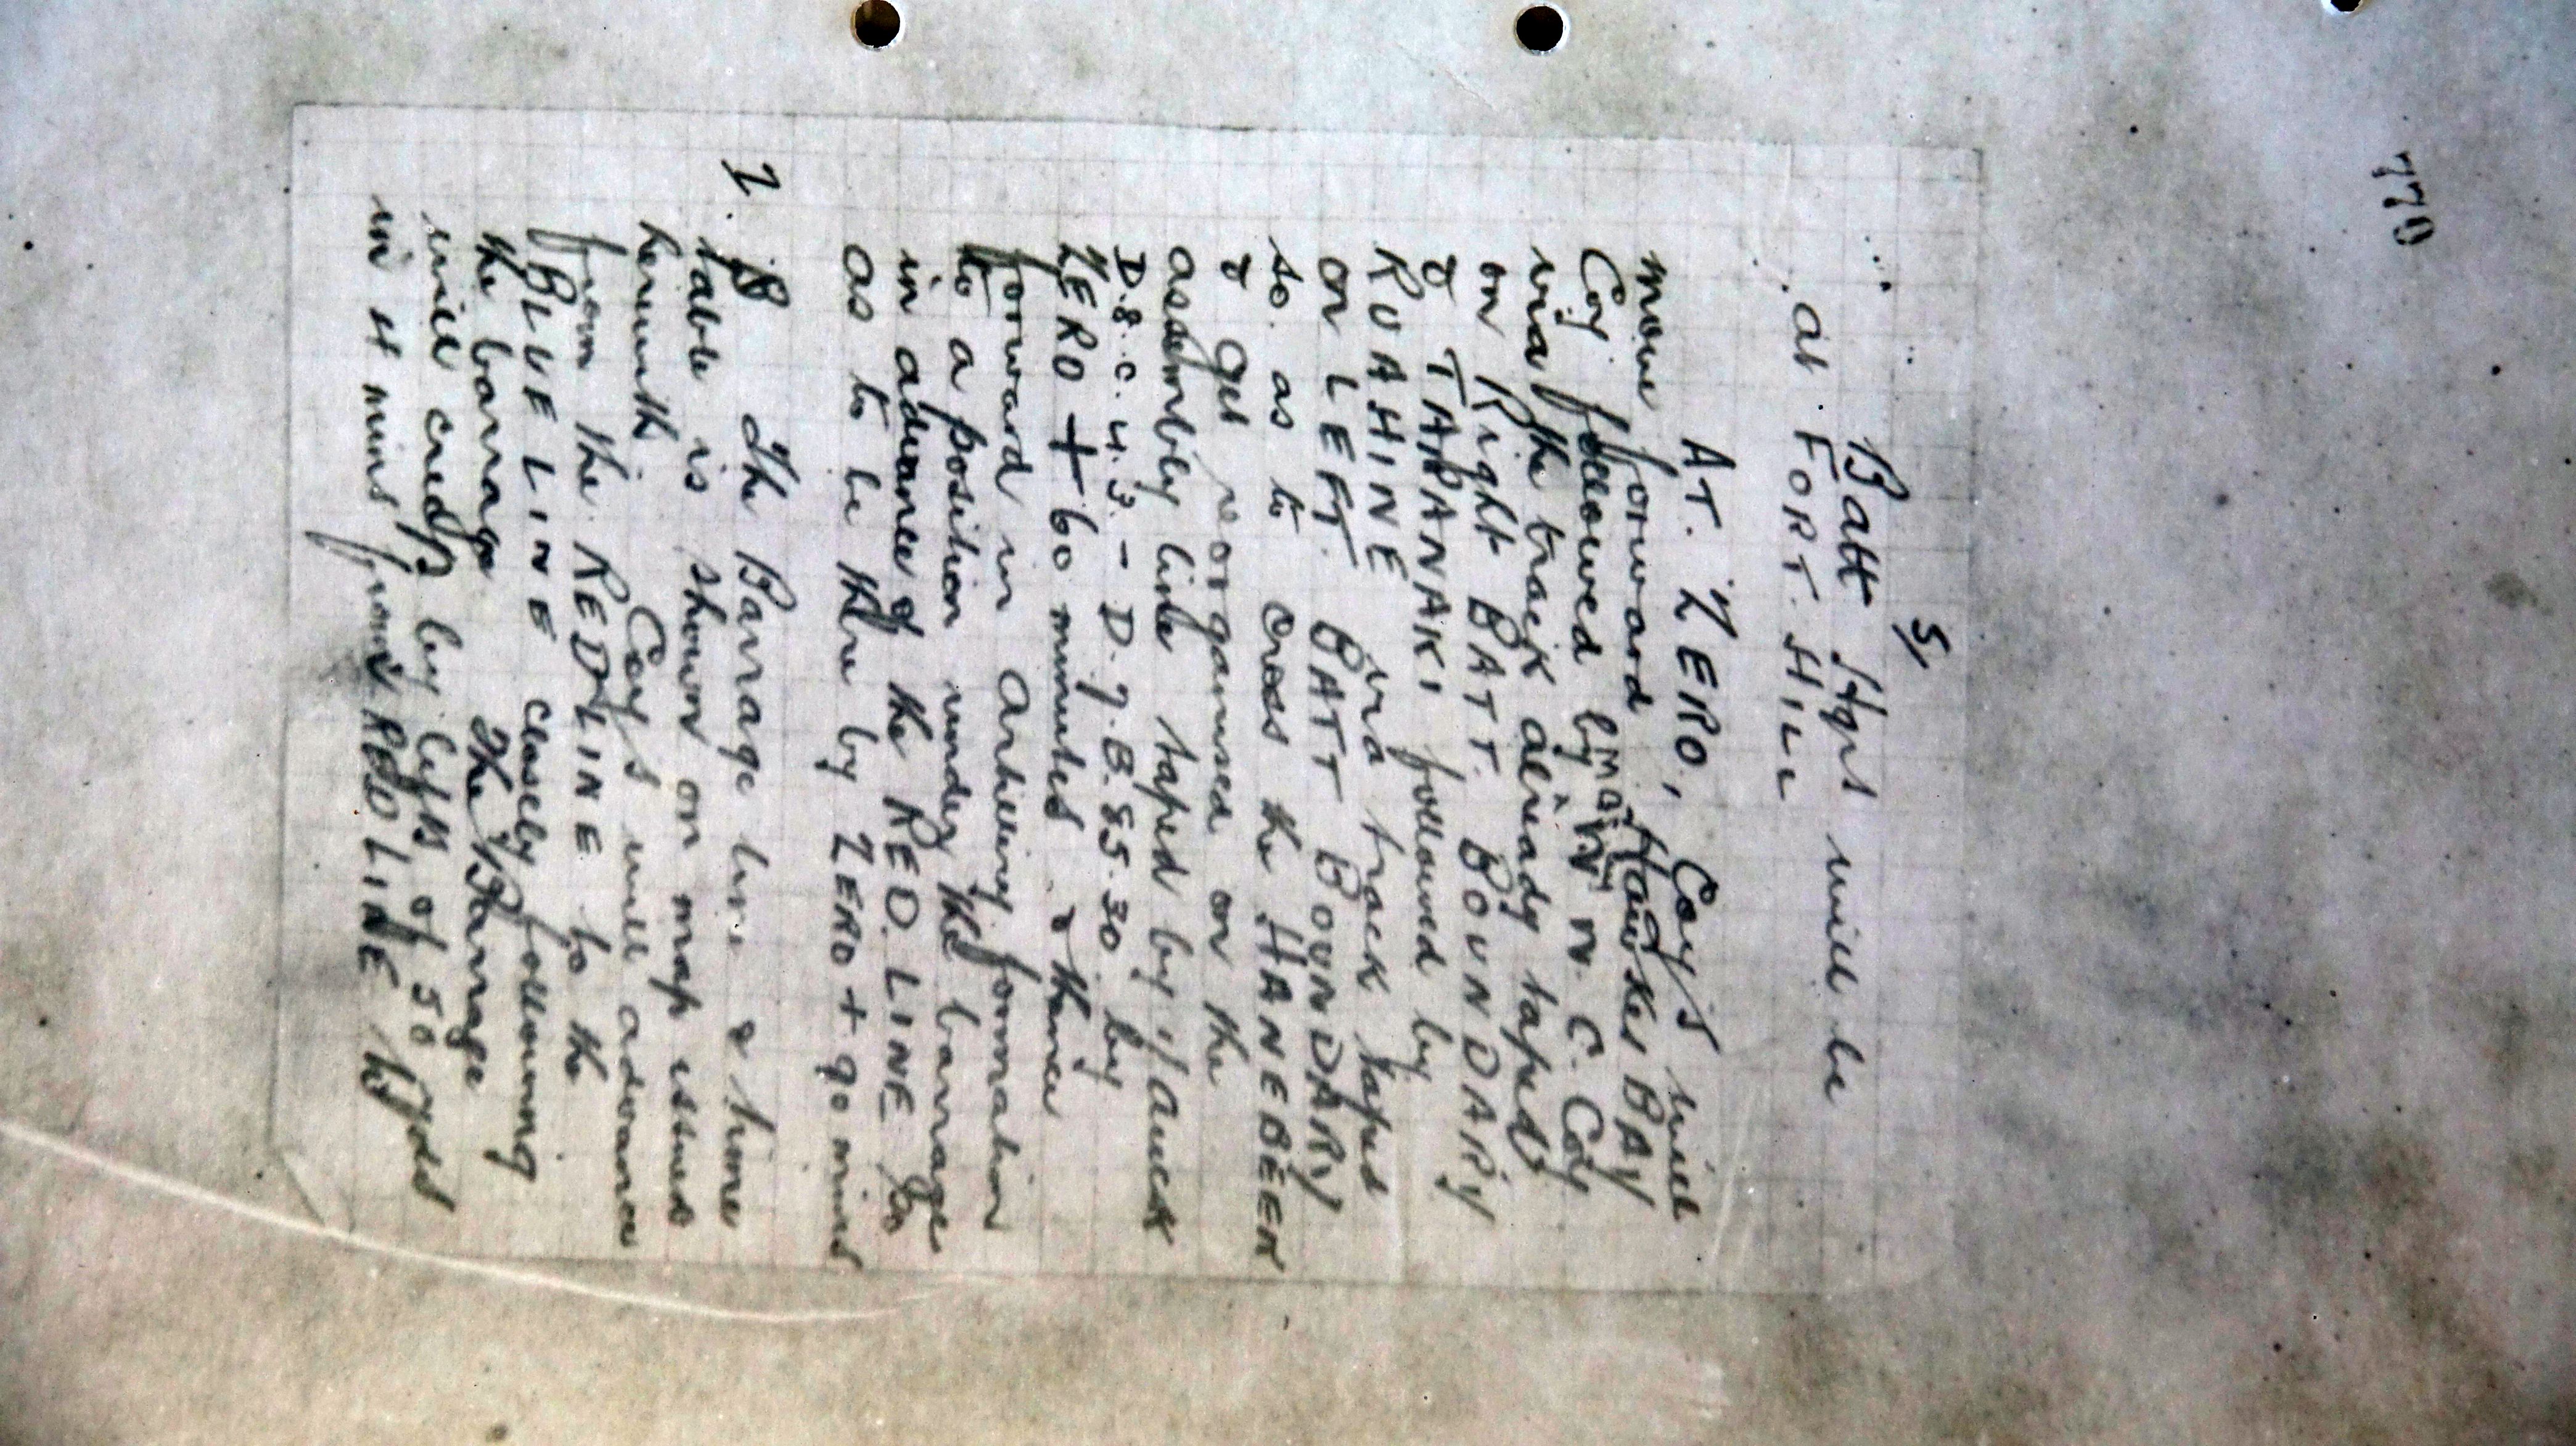 770
5/
Batt Hqrs will be
at FORT HILL
AT. ZERO, Coy's will
move forward Hawkes BAY
Coy followed by main N. C. Coy
via the track already taped
on Right BATT. BOUNDARY
& TARANAKI followed by
RUAHINE via track taped
on LEFT. BATT BOUNDARY
so as to cross the HANEBEEK
& get reorganised on the
assembly line taped by 1/Auck
D.8.c.4.3. - D.7.B.85.30 by
ZERO + 60 minutes & thence
forward in Artillery formation
to a position under the barrage
in advance of the RED. LINE so
as to be there by ZERO + 90 mins
7. The Barrage line & time
table is shown on map issued
herewith Coy's will advance
from the REDLINE to the
BLUE LINE closely following
the barrage The Barrage
will creep by lifts of 50 yds
in 4 mins from RED LINE to